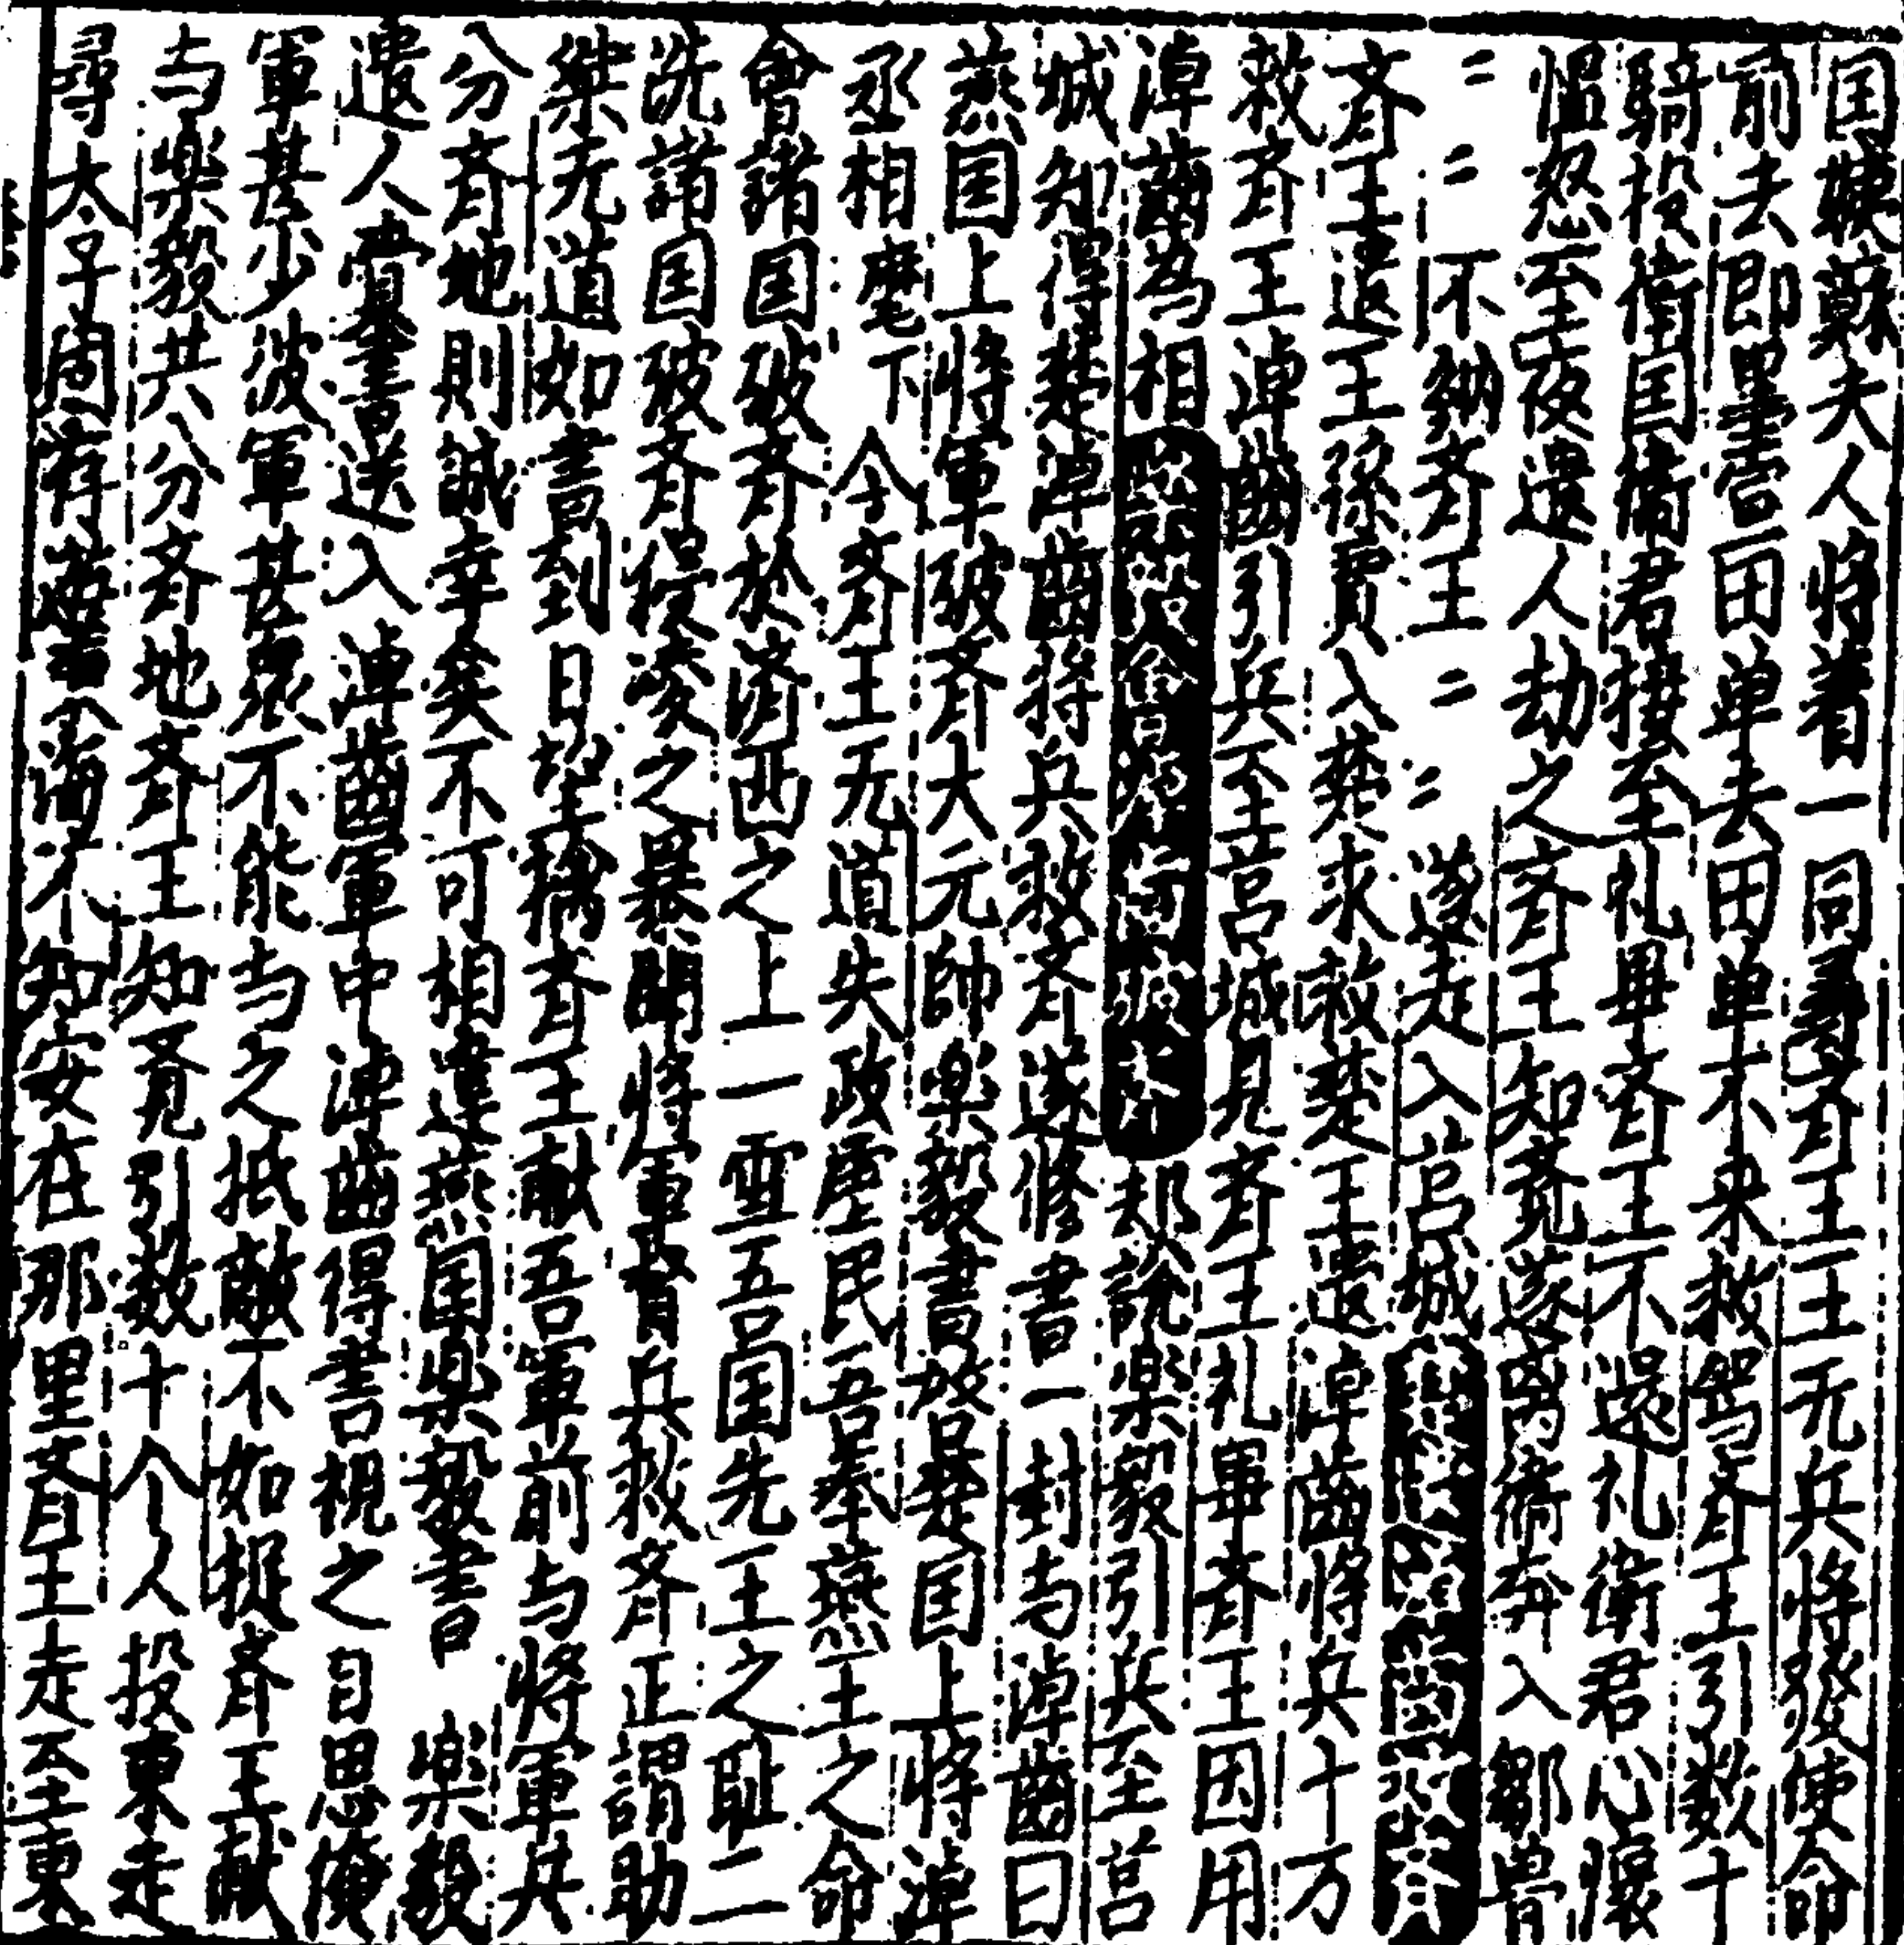 国㛐蘇夫人将着一同尋齐王王无兵将發使命
前去即墨宣田单去田单未来救驾齐王引数十
騎投衛国衛君接至礼畢齐王不還礼衛君心懷
愠怒至夜遣人劫之齐王知覺遂离衛奔入鄒魯
〻〻不納齐王〻〻遂走入莒城
齐王遣王孫賈入楚求救楚王遣淖齒将兵十万
救齐王淖齒引兵至莒城見齐王礼畢齐王因用
淖齒為相 却說楽毅引兵至莒
城知得楚淖齒将兵救齐遂修書一封与淖齒曰
燕国上将軍破齐大元帥楽毅書啓楚国上将淖
丞相麾下今齐王无道失政虐民吾奉燕王之命
會諸国破齐於济西之上一雪吾国先王之耻二
洗諸国破齐侵凌之暴聞将軍督兵救齐正謂助
桀无道如書到日望擒齐王献吾軍前与将軍共
分齐地則誠幸矣不可相違燕国楽毅書 楽毅
遣人賫書送入淖齒軍中淖齒得書視之自思俺
軍甚少彼軍甚衆不能与之抵敵不如捉齐王献
与楽毅共分齐地齐王知覺引数十个人投東走
尋太子固存蘇不知安在那里齐王走至東